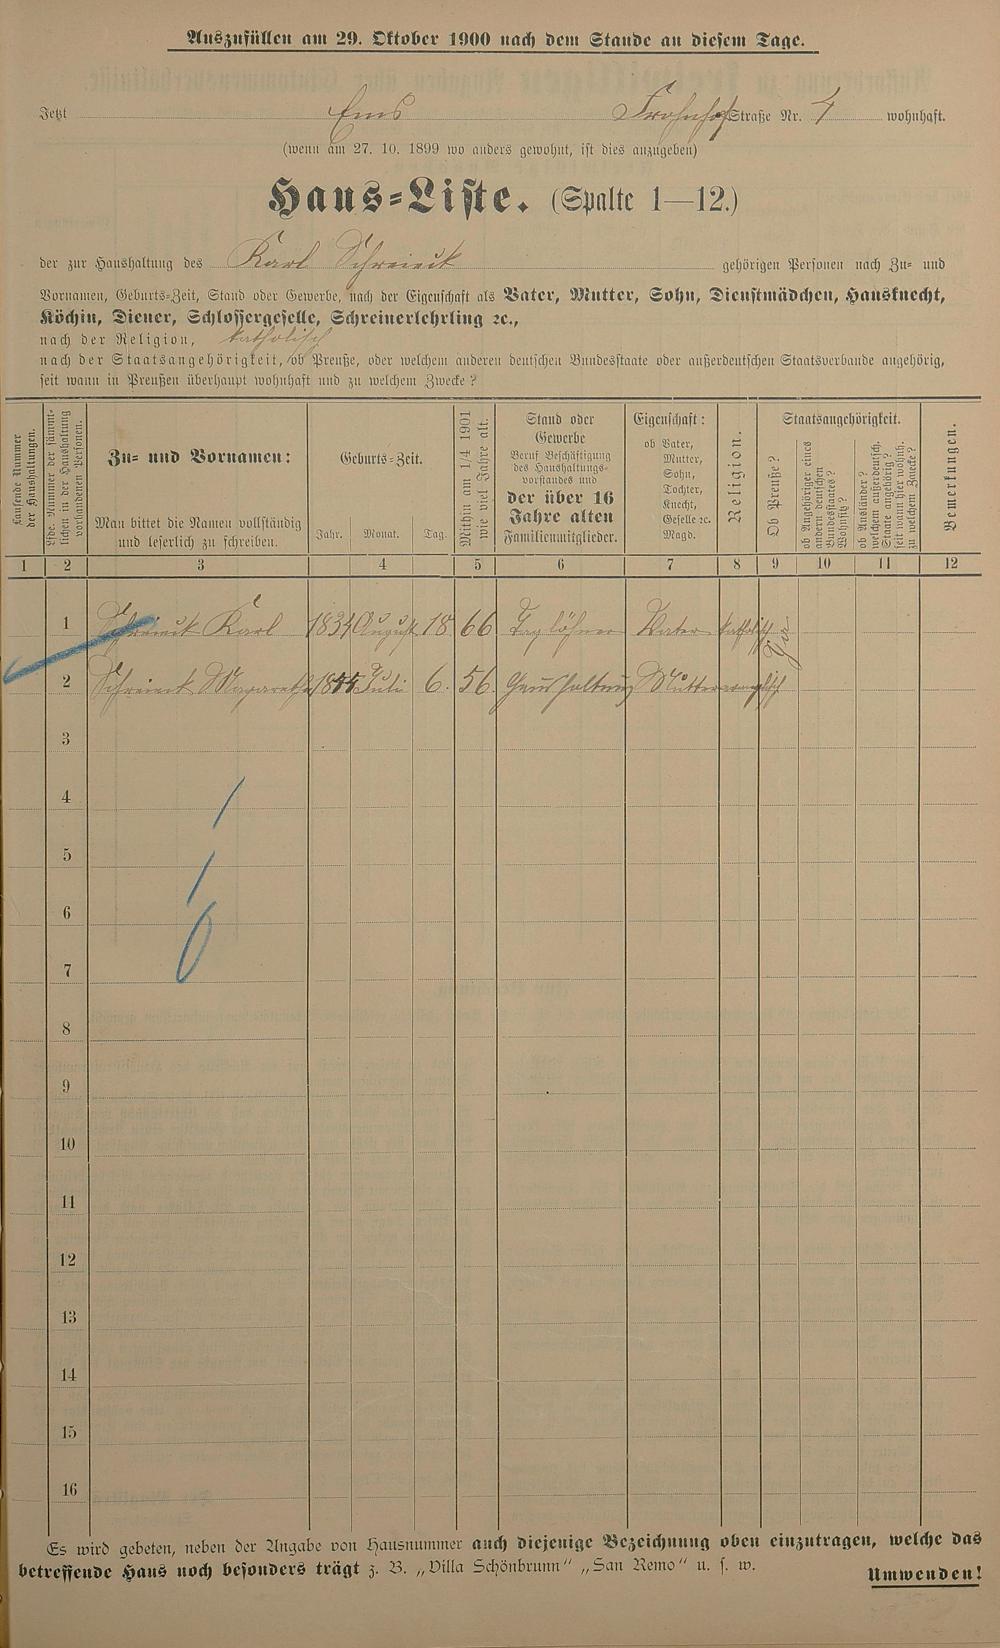 Auszufüllen am 29. Oktober 1900 nach dem Stande an diesem Tage.
Jetzt Ems Frohnhof Straße Nr. 4 wohnhaft.
(wenn am 27. 10. 1899 wo anders gewohnt, ist dies anzugeben)
Haus-Liste. (Spalte 1—12.)
der zur Haushaltung des Karl Schreieck gehörigen Personen nach Zu- und
Vornamen, Geburts-Zeit, Stand oder Gewerbe, nach der Eigenschaft als Vater, Mutter, Sohn, Dienstmädchen, Hausknecht,
Köchin, Diener, Schlossergeselle, Schreinerlehrling ꝛc.,
nach der Religion, katholisch
nach der Staatsangehörigkeit, ob Preuße, oder welchem anderen deutschen Bundesstaate oder außerdeutschen Staatsverbande angehörig,
seit wann in Preußen überhaupt wohnhaft und zu welchem Zwecke?
Laufende Nummer
der Haushaltungen.
Lfde. Nummer der sämmt-
lichen in der Haushaltung
vorhandenen Personen.
Zu- und Vornamen:
Man bittet die Namen vollständig
und leserlich zu schreiben.
Geburts-Zeit.
Jahr. Monat. Tag.
Mithin am 1/4 1901
wie viel Jahre alt.
Stand oder
Gewerbe
Beruf Beschäftigung
des Haushaltungs-
vorstandes und
der über 16
Jahre alten
Familienmitglieder.
Eigenschaft:
ob Vater,
Mutter,
Sohn,
Tochter,
Knecht,
Geselle ꝛc.
Magd.
Religion.
Staatsangehörigkeit.
Ob Preuße?
ob Angehöriger eines
andern deutschen
Bundesstaates?
Wohnsitz?
ob Ausländer?
welchem außerdeutsch.
Staate angehörig?
seit wann hier wohnh.
zu welchem Zwecke?
Bemerkungen.
1 2 3 4 5 6 7 8 9 10 11 12
1 Schreieck Karl 1834 August 18 66 Taglöhner Vater katholisch Ja
2 Schreieck Margarethe Juli 6. 56 Haushaltung Mutter
3
4
5
6
7
8
9
10
11
12
13
14
15
16
Es wird gebeten, neben der Angabe von Hausnummer auch diejenige Bezeichnung oben einzutragen, welche das
betreffende Haus noch besonders trägt z. B. „Villa Schönbrunn" „San Remo" u. s. w.
Umwenden!